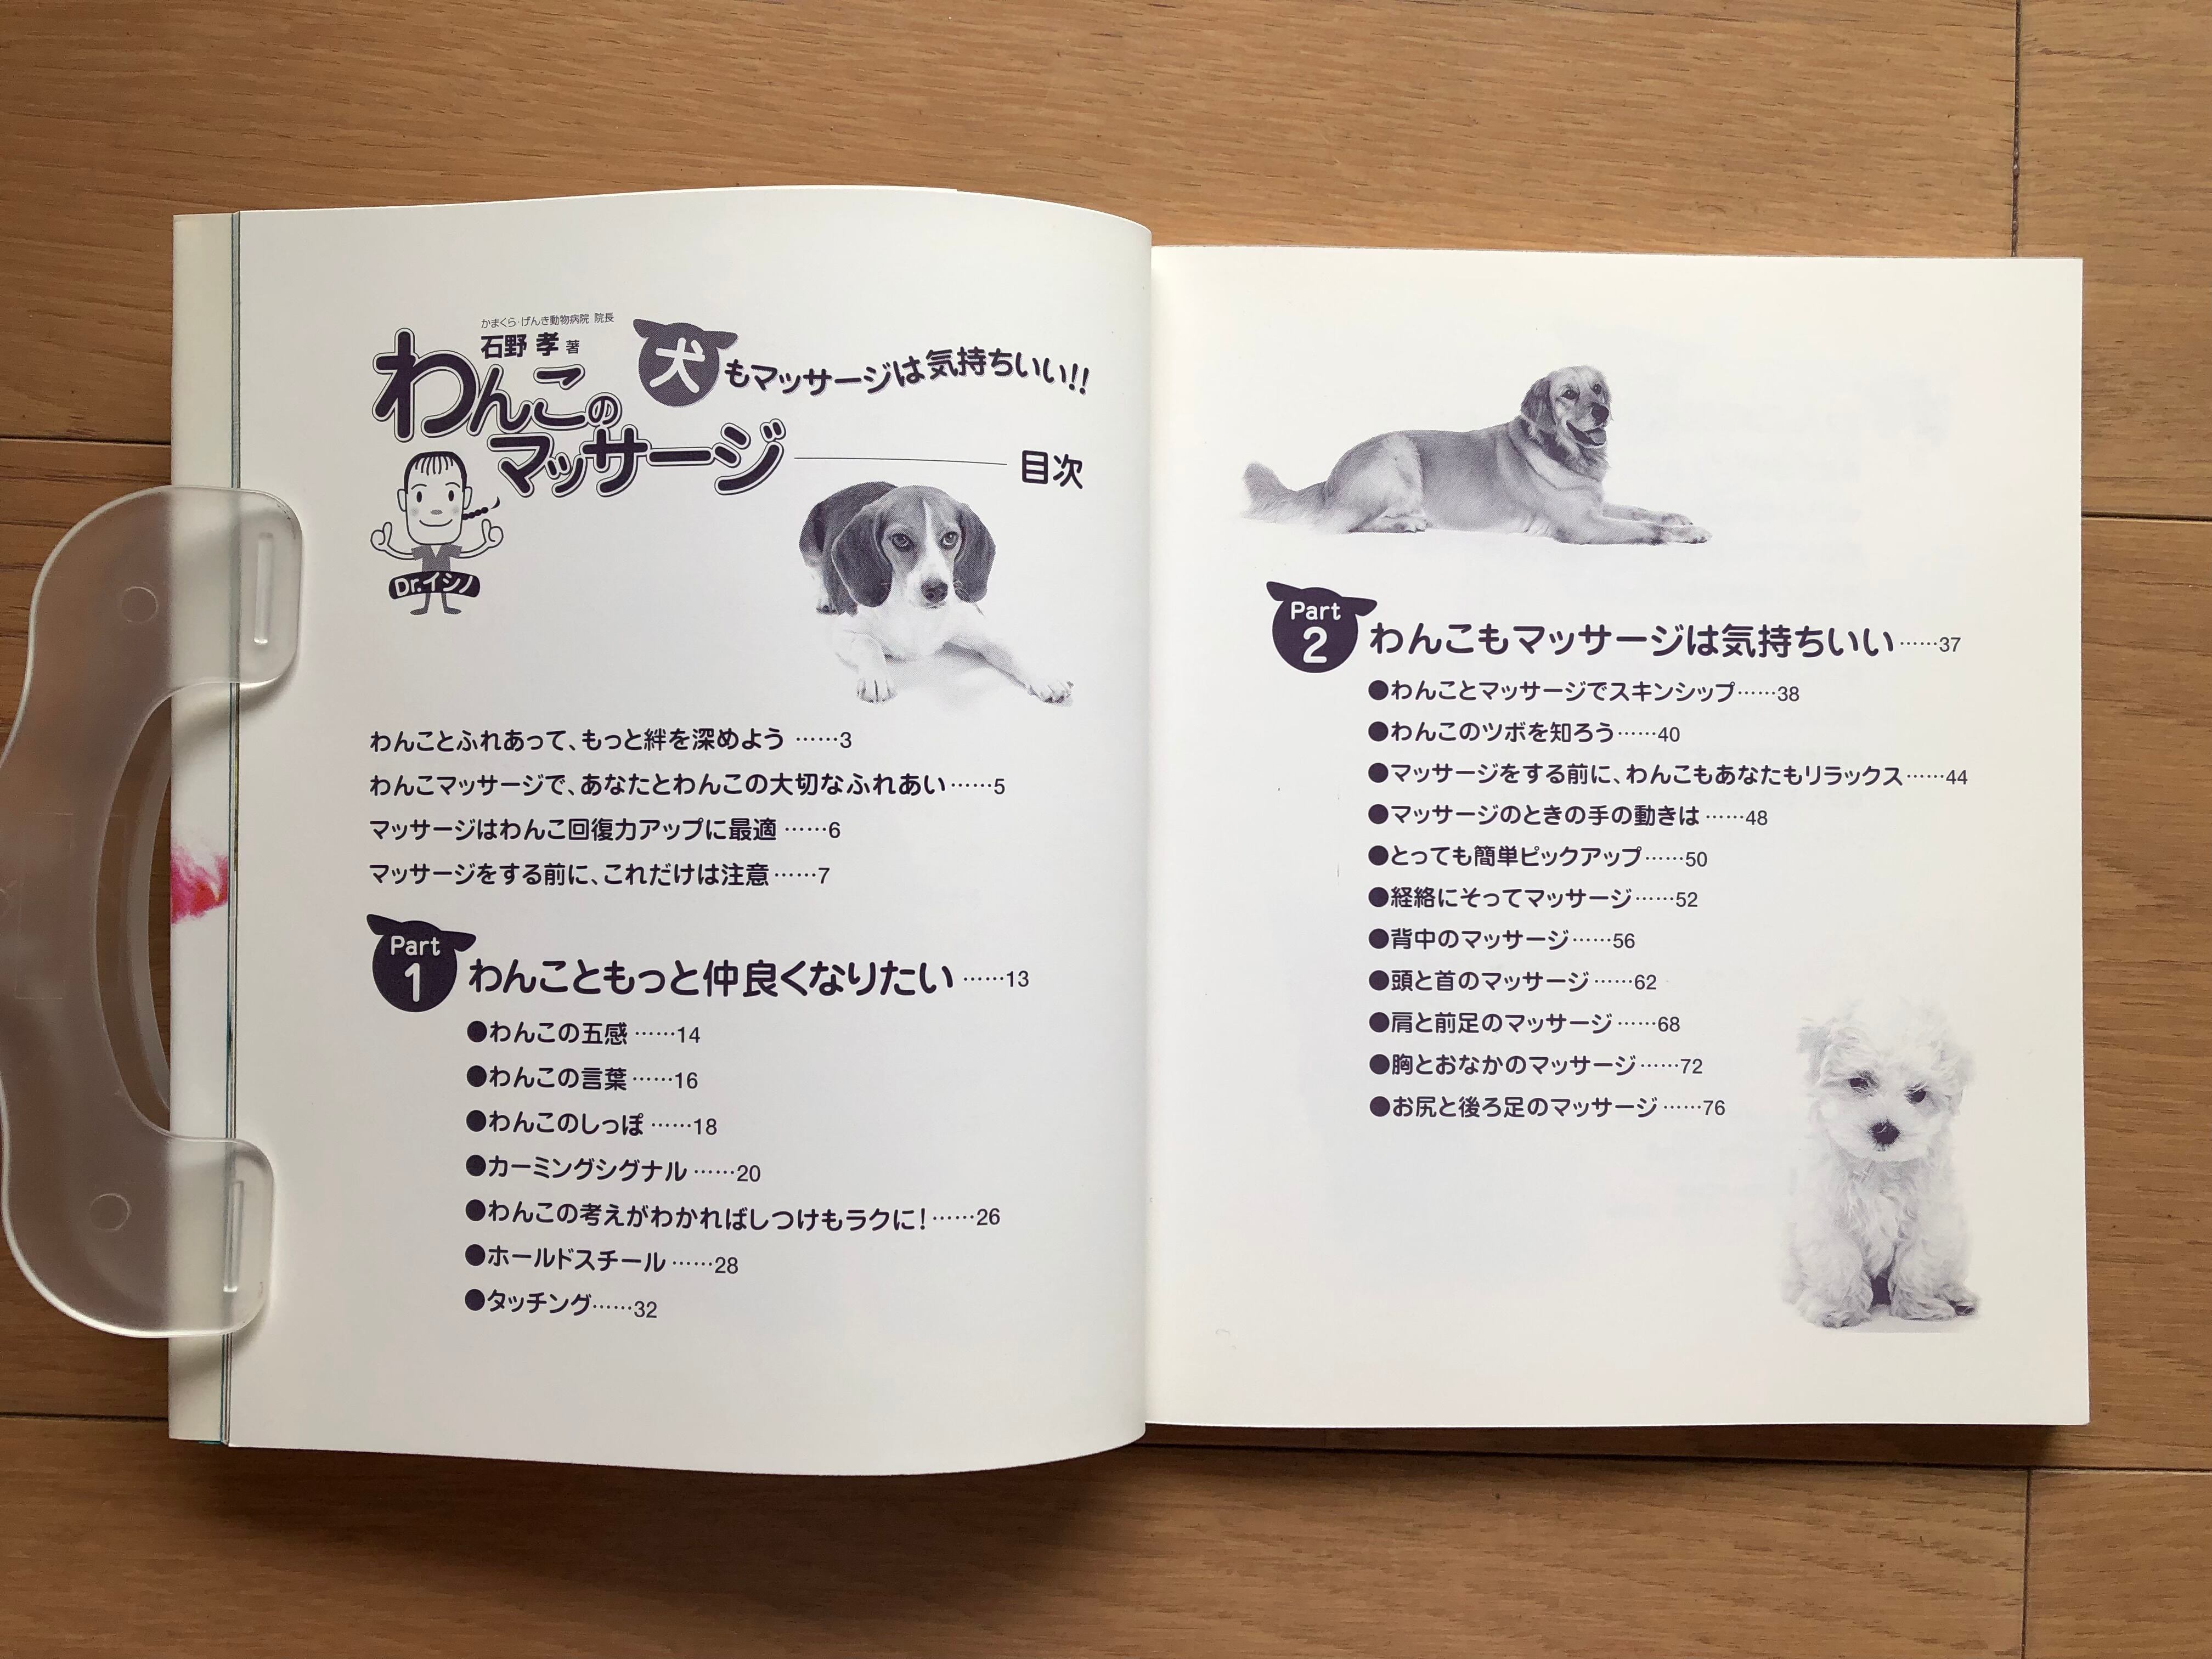 かまくら・げんき動物病院 院長
石野 孝 著
わんこの
マッサージ
犬もマッサージは気持ちいい!!
目次
Dr.イシノ
わんことふれあって、もっと絆を深めよう ……3
わんこマッサージで、あなたとわんこの大切なふれあい……5
マッサージはわんこ回復力アップに最適 ……6
マッサージをする前に、これだけは注意……7
Part 1 わんこともっと仲良くなりたい ……13
●わんこの五感 ……14
●わんこの言葉 ……16
●わんこのしっぽ ……18
●カーミングシグナル ……20
●わんこの考えがわかればしつけもラクに!……26
●ホールドスチール ……28
●タッチング……32
Part 2 わんこもマッサージは気持ちいい……37
●わんことマッサージでスキンシップ……38
●わんこのツボを知ろう……40
●マッサージをする前に、わんこもあなたもリラックス……44
●マッサージのときの手の動きは ……48
●とっても簡単ピックアップ……50
●経絡にそってマッサージ……52
●背中のマッサージ……56
●頭と首のマッサージ ……62
●肩と前足のマッサージ ……68
●胸とおなかのマッサージ ……72
●お尻と後ろ足のマッサージ ……76